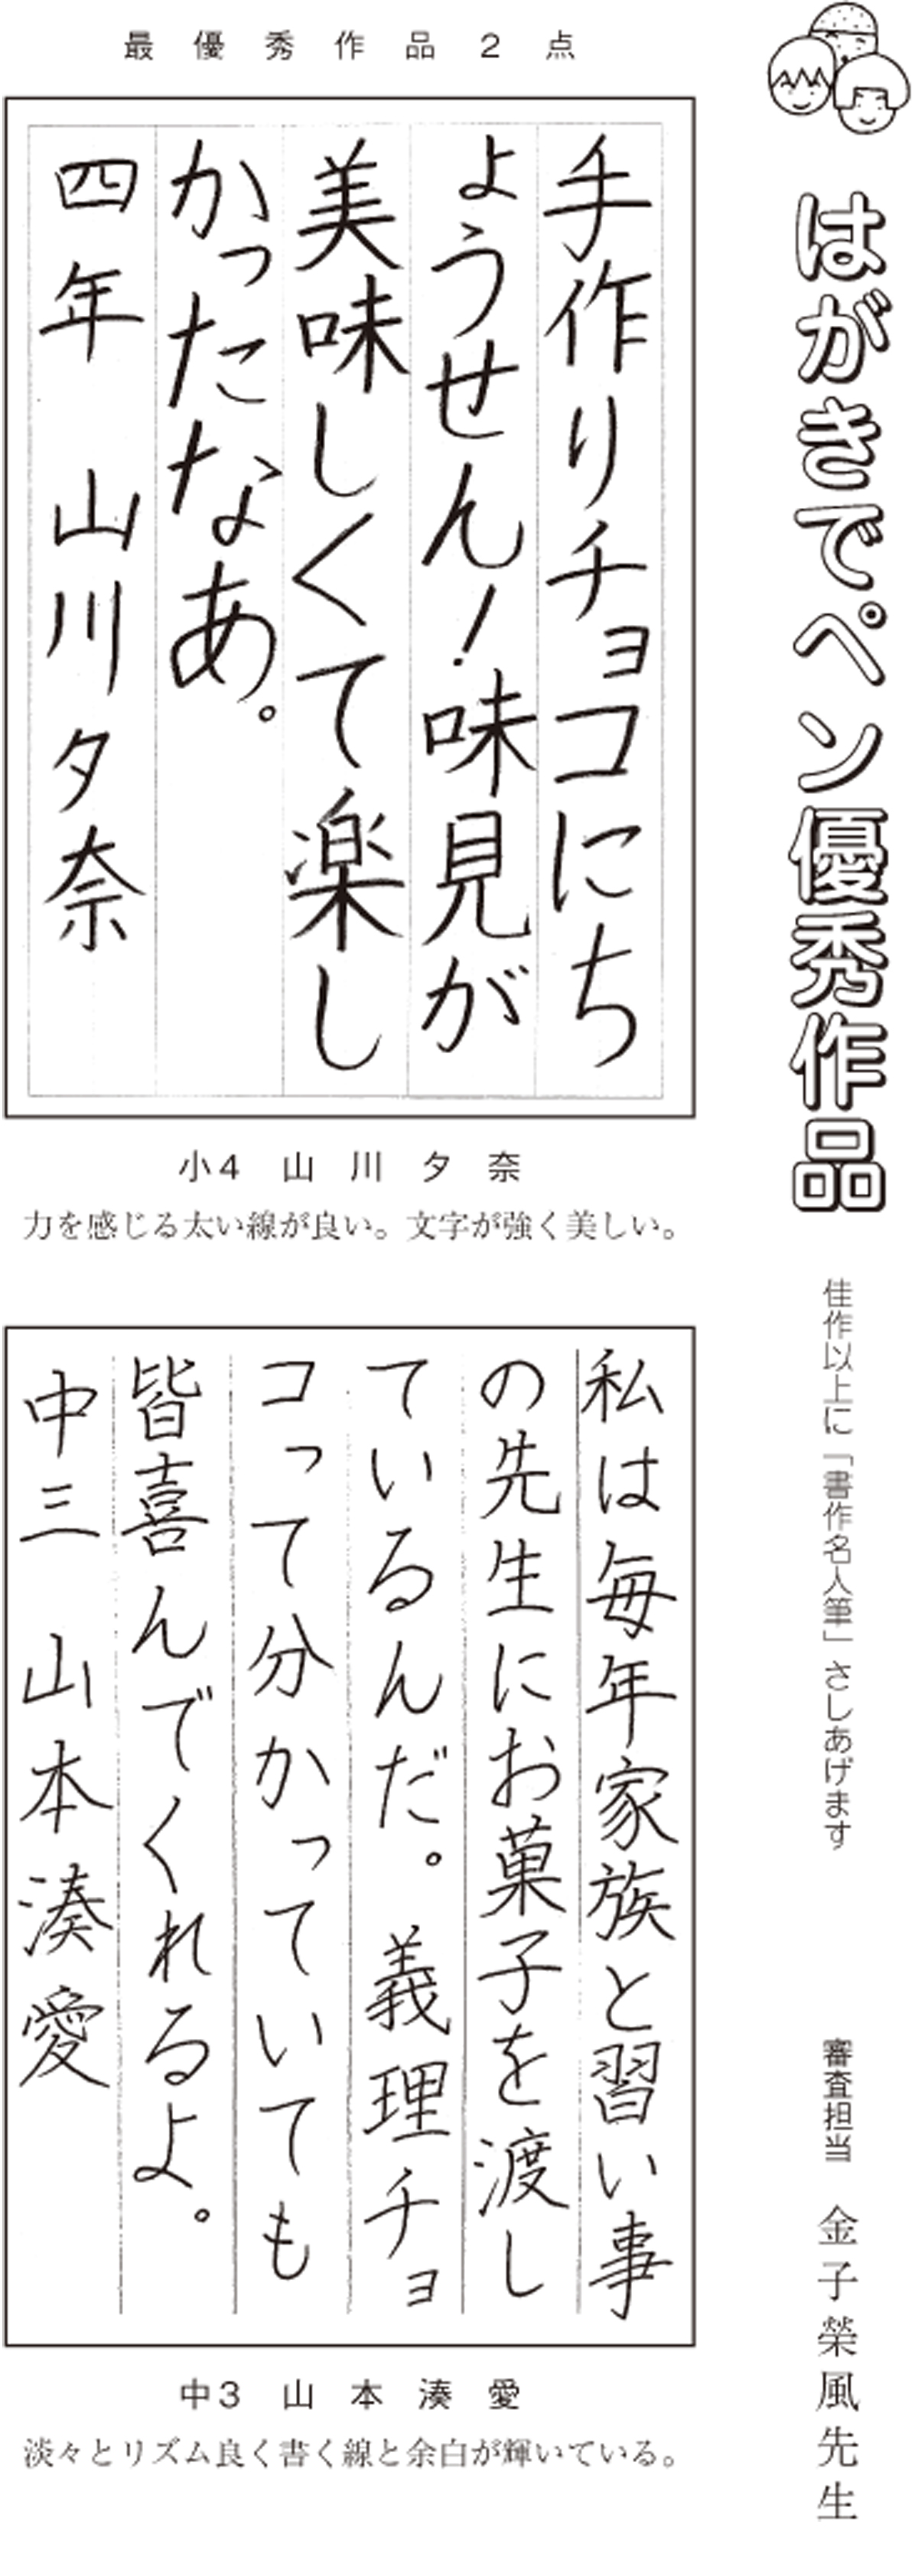 はがきでペン優秀作品
佳作以上に「書作名人筆」さしあげます
審査担当　金子榮風先生
最優秀作品2点
手作りチョコにち
ょうせん！味見が
美味しくて楽し
かったなあ。
四年　山川夕奈
小4　山川夕奈
力を感じる太い線が良い。文字が強く美しい。
私は毎年家族と習い事
の先生にお菓子を渡し
ているんだ。義理チョ
コって分かっていても
皆喜んでくれるよ。
中三　山本湊愛
中3　山本湊愛
淡々とリズム良く書く線と余白が輝いている。